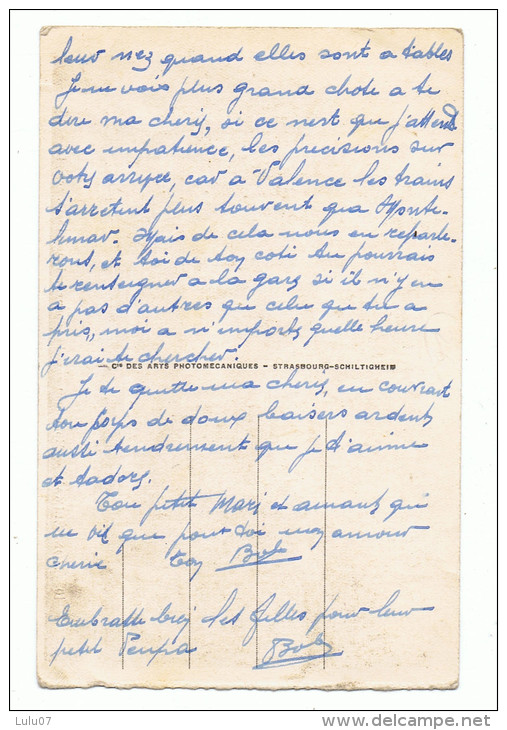 leur nez quand elles sont a tables
Je ne vois plus grand chose a te
dire ma cheris, si ce nest que j'attend
avec impatience, les precisions sur
votre arrivee, car a Valence les trains
s'arretent plus souvent qua Monte-
limar. Mais de cela nous en reparle-
rons, et toi de ton coti tu pourrais
te renseigner a la gare si il n'y en
a pas d'autres que celui que tu a
pris, moi a n'importe quelle heure
j'irai te chercher.
Cie DES ARTS PHOTOMECANIQUES - STRASBOURG-SCHILTIGHEIM
Je te quitte ma cheris, en couvrant
ton corps de doux baisers ardents
aussi tendrement que je t'aime
et tadore.
Ton petit Mari et amant qui
ne vit que pour toi mon amour
cherie Ton Bob
Embrasse bien les filles pour leur
petit Bob
Lulu07
www.delcampe.net